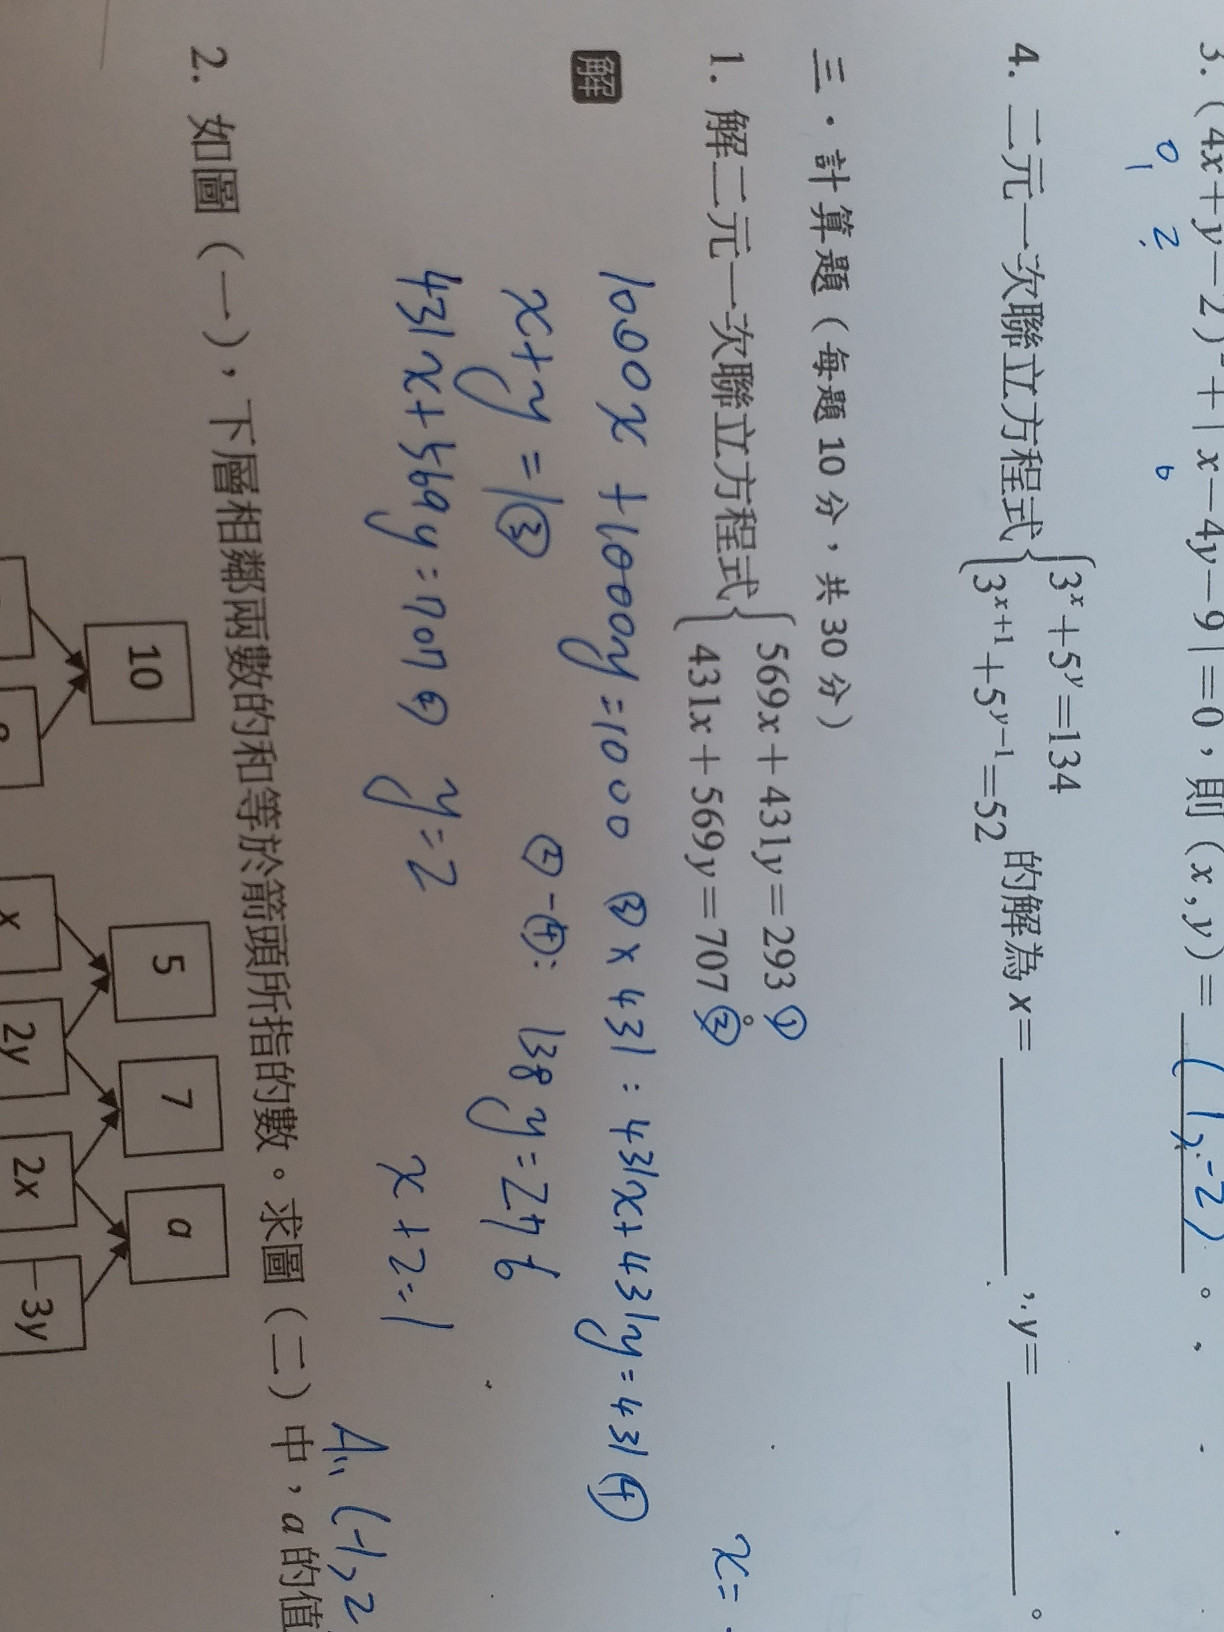 3. (4x+y-2)²+|x-4y-9|=0，則(x,y)= (1,-2) 。
0 2 6
1
4. 二元一次聯立方程式{3^x+5^y=134
3^{x+1}+5^{y-1}=52 的解為 x=＿＿＿，y=＿＿＿。
三．計算題（每題10分，共30分）
1. 解二元一次聯立方程式{569x+431y=293 ①
431x+569y=707 ②。
x=
解
1000x+1000y=1000 ③×431：431x+431y=431 ④
x+y=1 ③ ②-④：138y=276
431x+569y=707 ② y=2 x+2=1
A：(-1,2
2. 如圖（一），下層相鄰兩數的和等於箭頭所指的數。求圖（二）中，a的值
10 5 7 a
x 2y 2x -3y